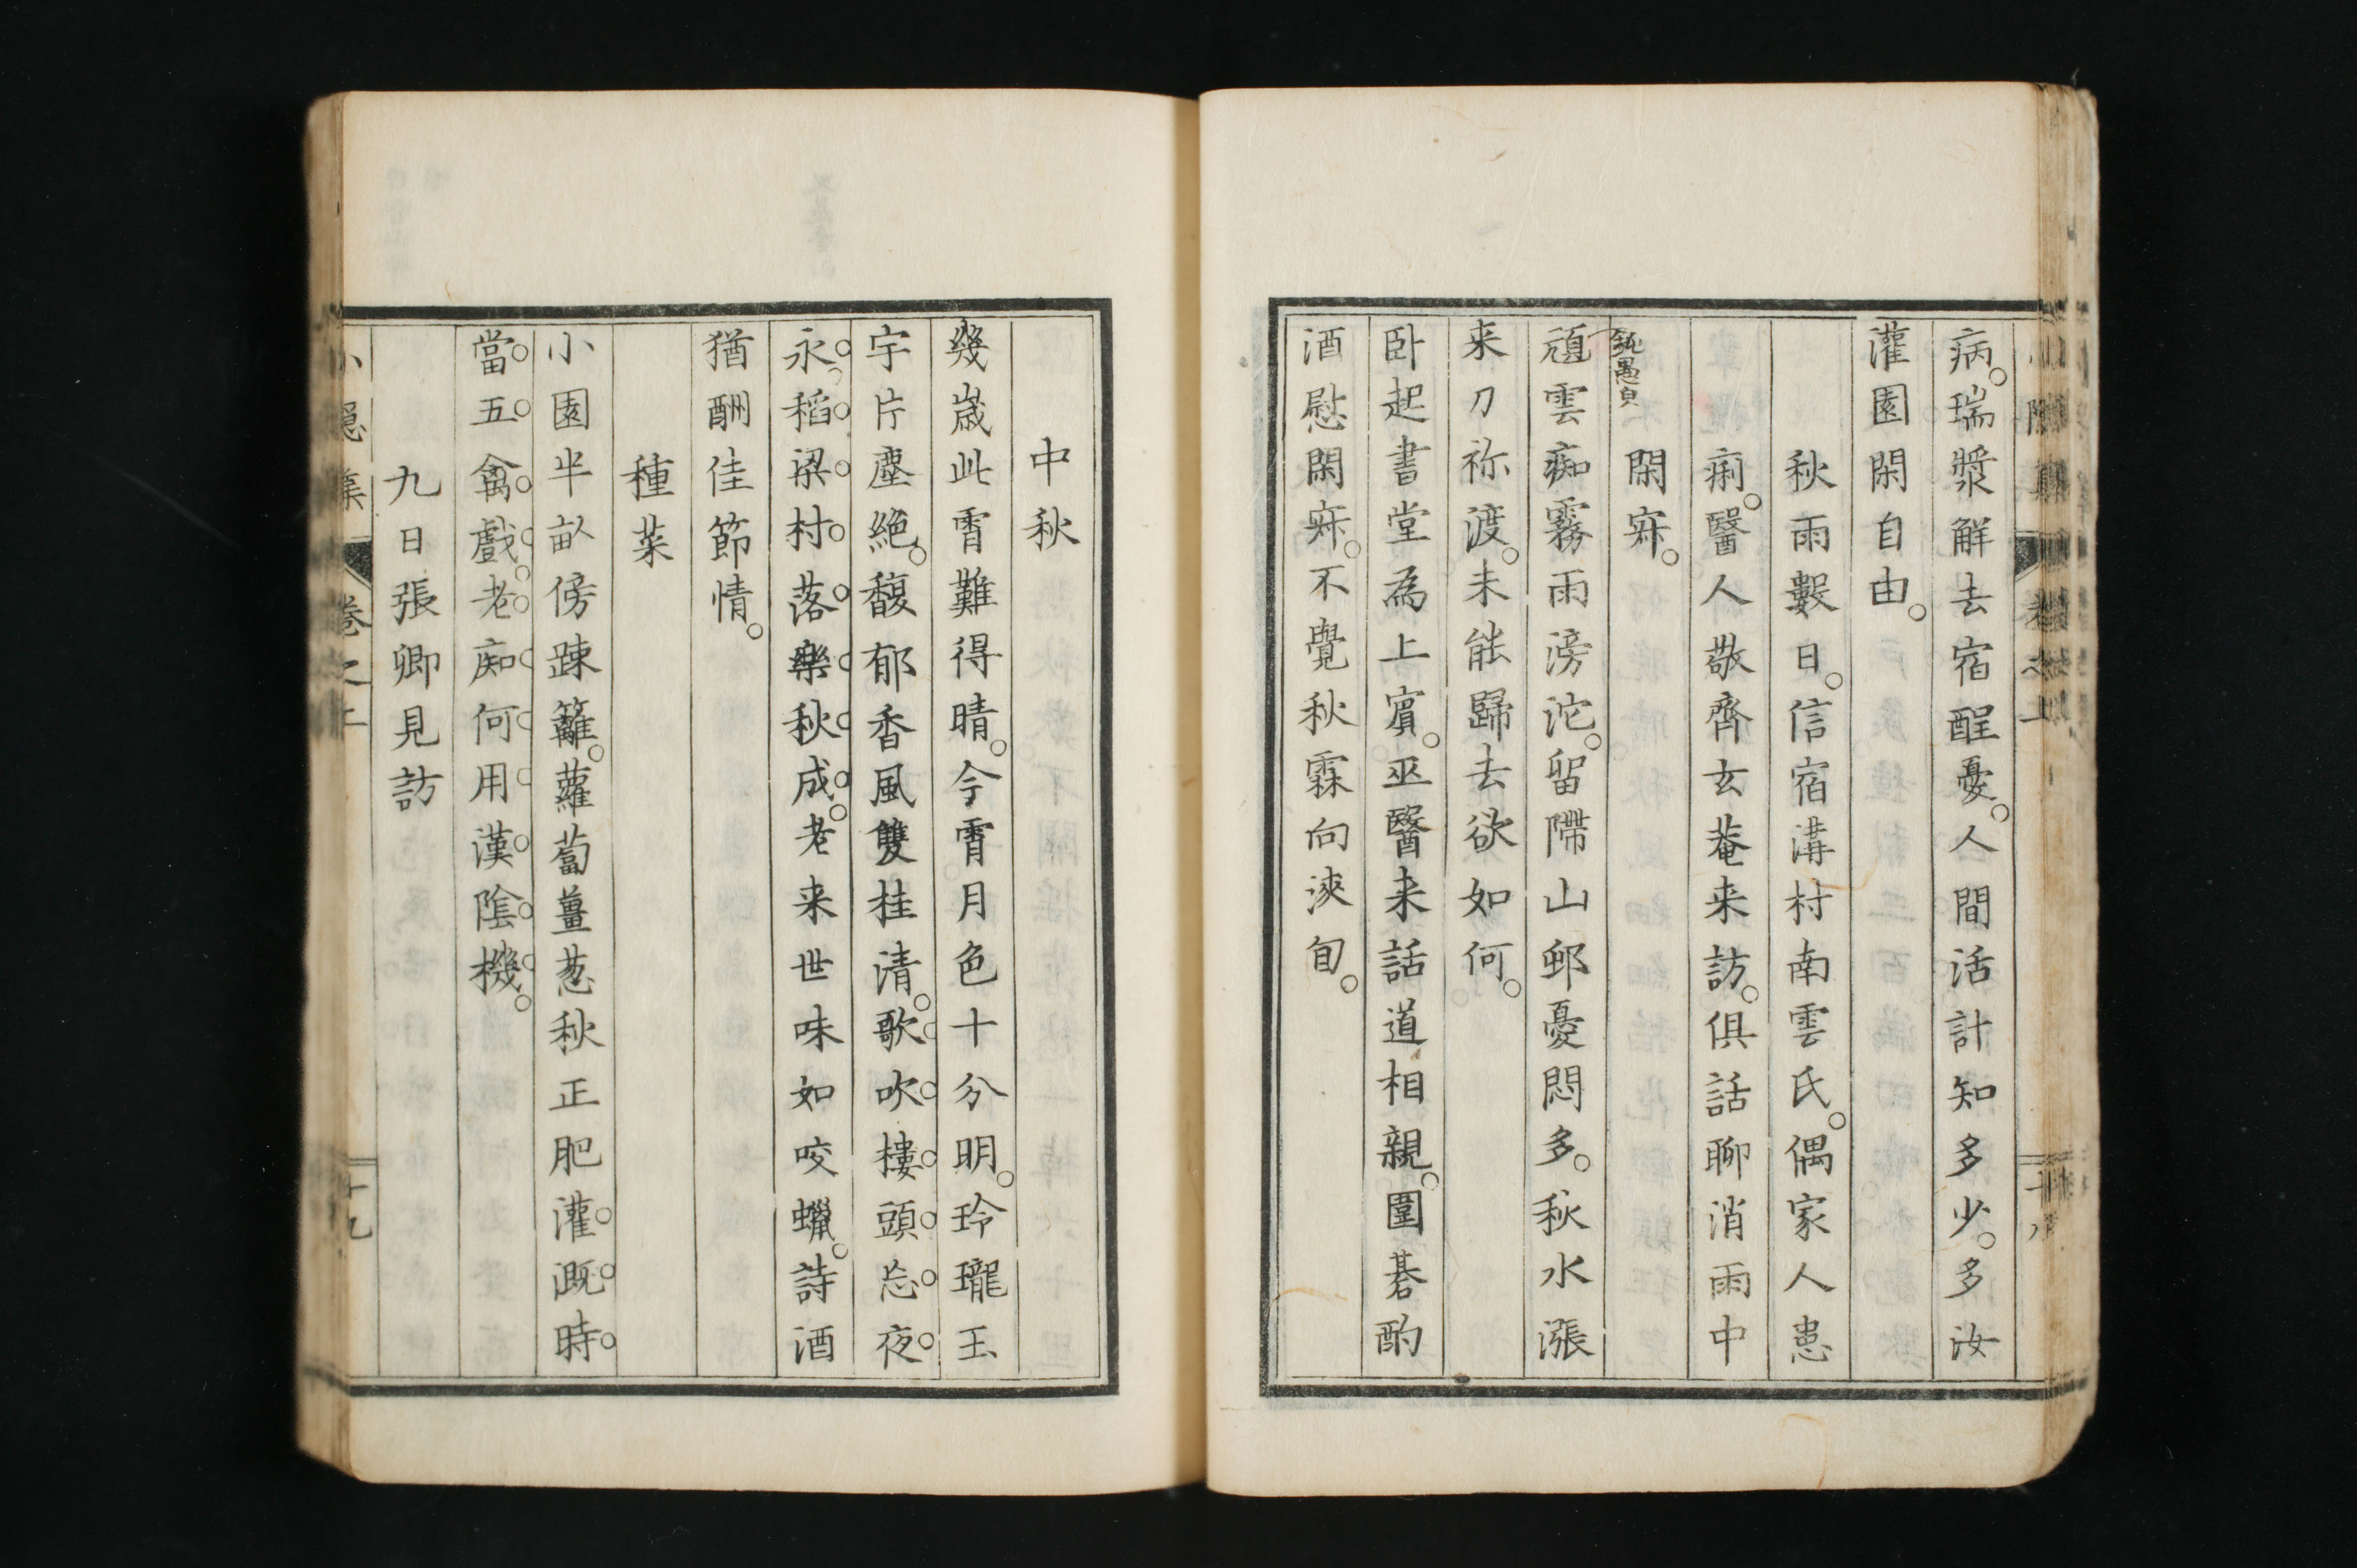 病。瑞漿解去宿酲憂。人間活計知多少。多汝
灌園閑自由。
秋雨數日。信宿溝村南雲氏。偶家人患
痢。醫人敬齊玄菴来訪。俱話聊消雨中
閑寐。
鈍愚貞
頑雲痴霧雨滂沱。留滯山邨憂悶多。秋水漲
来刀祢渡。未能歸去欲如何。
臥起書堂為上賓。巫醫来話道相親。圍碁酌
酒慰閑寐。不覺秋霖向浹旬。
中秋
幾歲此霄難得晴。今霄月色十分明。玲瓏玉
宇片塵絕。馥郁香風雙桂清。歌吹樓頭忘夜
永。稻梁村落樂秋成。老来世味如咬蠟。詩酒
猶酬佳節情。
種菜
小園半畝傍踈籬。蘿蔔薑葱秋正肥。灌溉時
當五禽戲。老痴何用漢陰機。
九日張卿見訪
小隱集 卷之上 十九